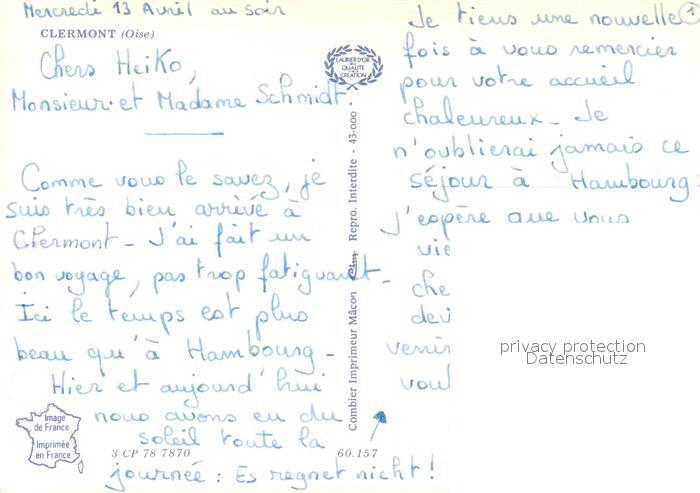 Mercredi 13 Avril au soir
CLERMONT (Oise)
Chers Heiko,
Monsieur et Madame Schmidt.
Comme vous le savez, je
suis très bien arrivé à
Clermont - J'ai fait un
bon voyage, pas trop fatiguant -
Ici le temps est plus
beau qu'à Hambourg -
Hier et aujourd'hui
nous avons eu du
soleil toute la
journée : Es regnet nicht !
Image
de France
Imprimée
en France
3 CP 78 7870
60.157
LAURIER D'OR
DE LA
QUALITÉ
CRÉATION
Combier Imprimeur Mâcon Cim Repro. Interdite - 43-000
1
Je tiens une nouvelle
fois à vous remercier
pour votre accueil
chaleureux - Je
n'oublierai jamais ce
séjour à Hambourg
J'espère que vous
vie
che
devi
venir
voul
privacy protection
Datenschutz